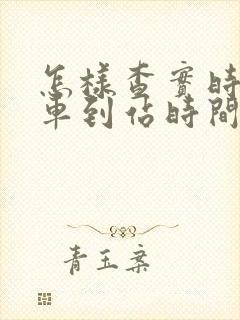 怎樣查實時
車到佔時間
青玉案